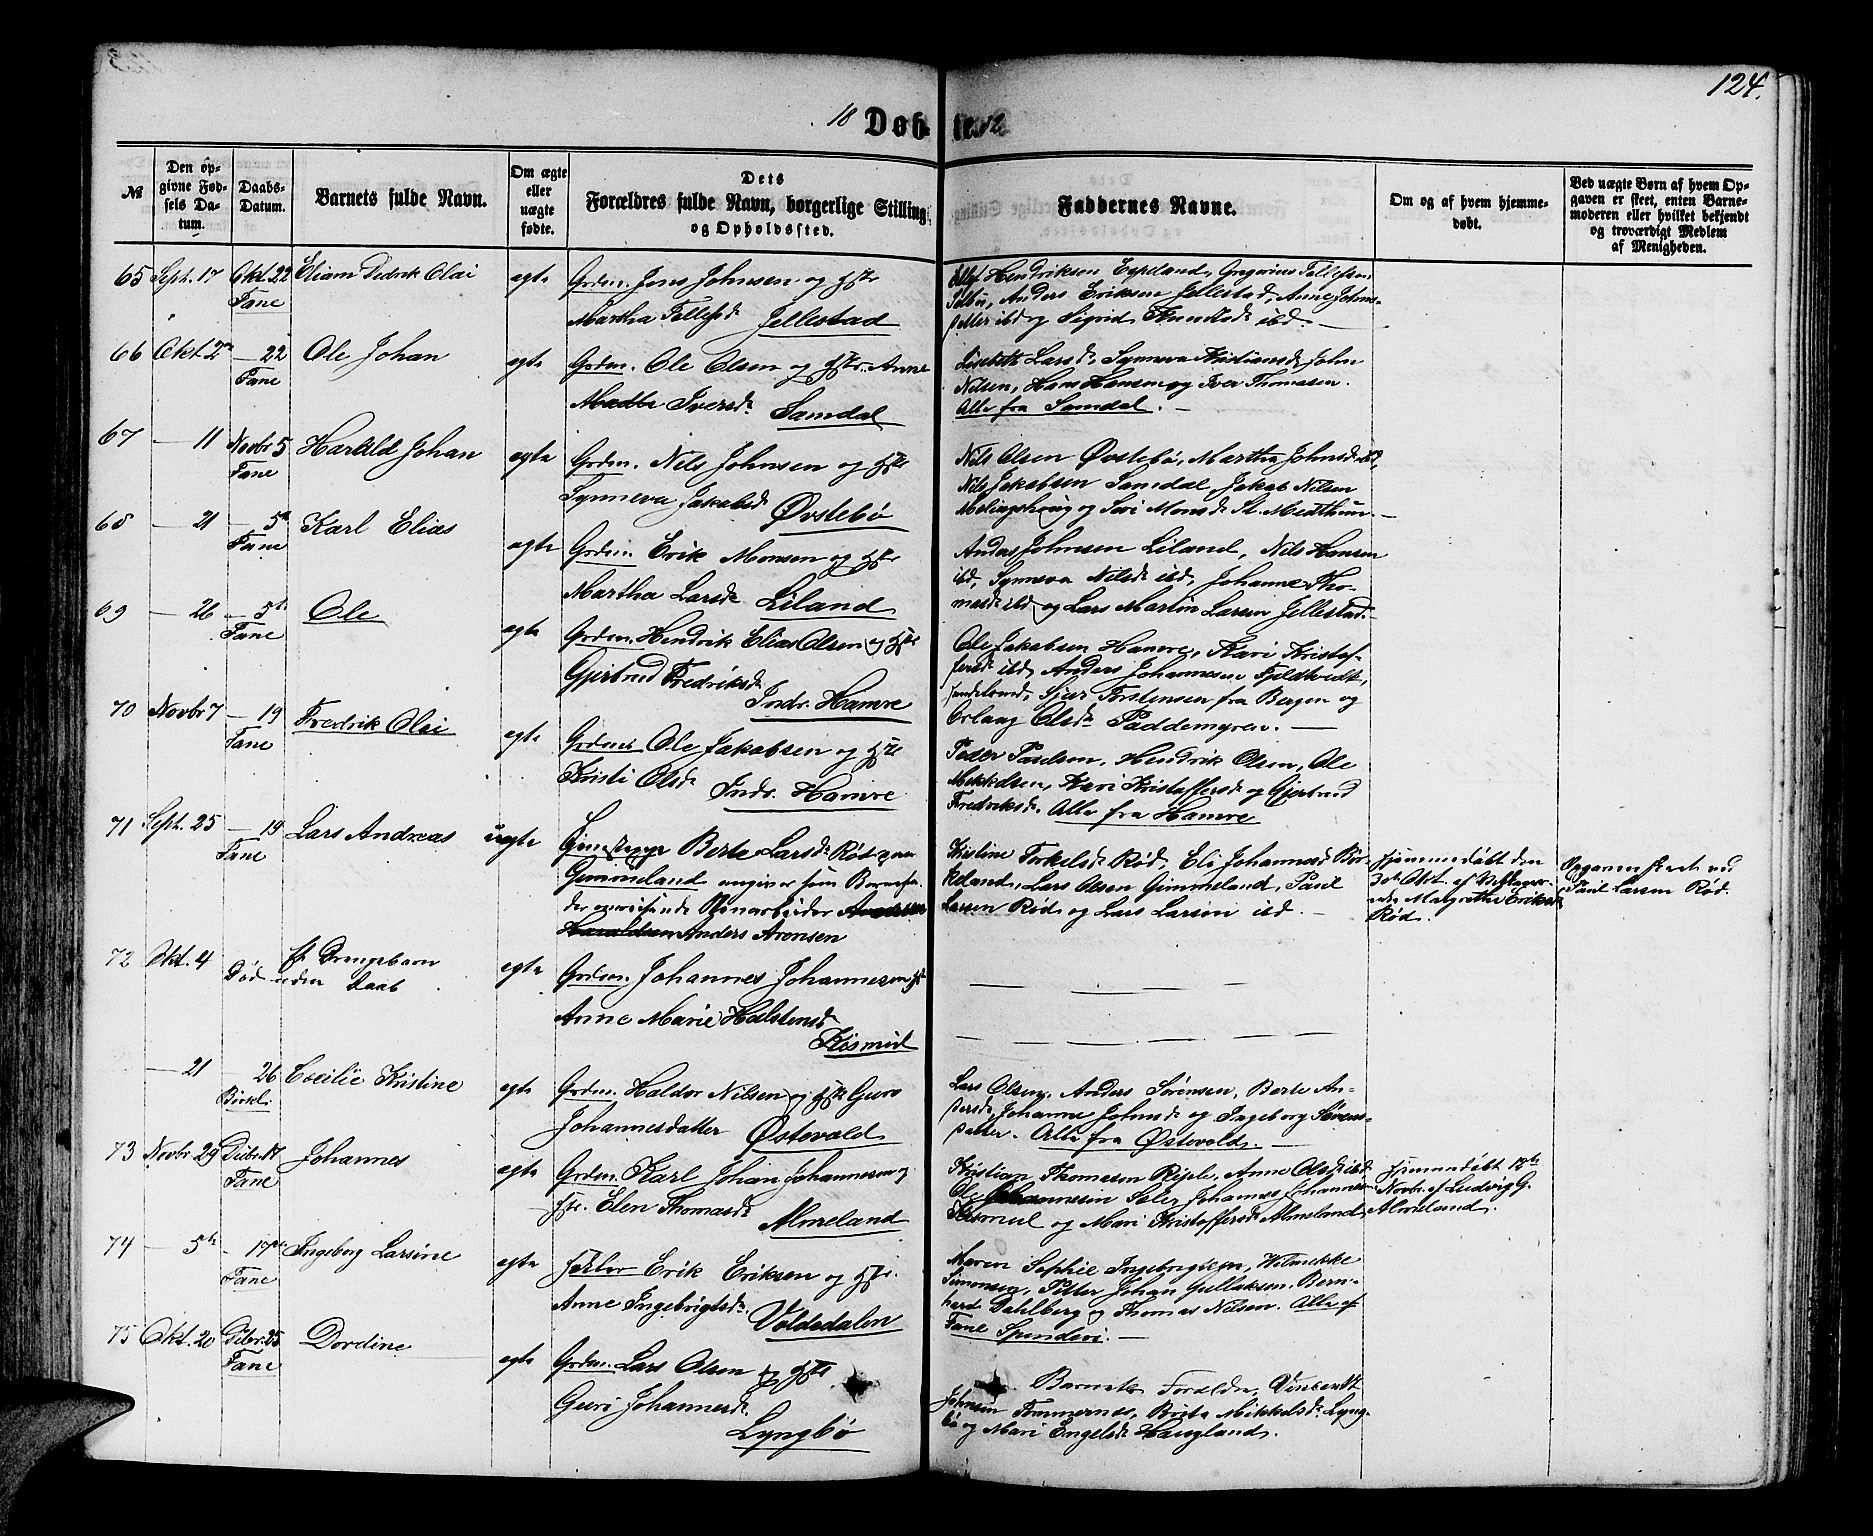 124.
18 Døbte.
№
Den opgivne Fødsels Datum.
Daabs-Datum.
Barnets fulde Navn.
Om ægte eller uægte fødte.
Dets Forældres fulde Navn, borgerlige Stilling og Opholdssted.
Faddernes Navne.
Om og af hvem hjemmedøbt.
Ved uægte Børn af hvem Opgaven er skeet, enten Barnemoderen eller hvilket bekjendt og troværdigt Medlem af Menigheden.
65 Sept. 17 Okt. 22 Fane
Didrik Olai
egte
Grdm. Jens Johnsen og Hstr
Martha Tollefsd. Jellestad
Hendriksen Espeland, Gregorius Tollefsen
Anders Eriksen Jellestad, Anne Johns-
datter ibd og Sigrid Knudsd. ibd.
66 Okt. 2 — 22 Fane
Ole Johan
egte
Grdm. Ole Olsen og Hstr. Anne
Iversd. Samdal
Lisbeth Larsd, Synneva Kristiansd, John
Nilsen, Hans Hansen og Iver Thomassen.
Alle fra Samdal. —
67 — 11 Novbr 5 Fane
Harald Johan
egte
Grdm. Nils Johnsen og Hstr
Synneva Jakobsd. Øvstebø
Nils Olsen Øvstebø, Martha Johnsd. ibd,
Nils Jakobsen Samdal, Jakob Nilsen
Melingshoug og Siri Monsd. St. Midthun. —
68 — 21 — 5te Fane
Karl Elias
egte
Grdm. Erik Monsen og Hstr
Martha Larsd. Liland
Anders Johnsen Liland, Nils Hansen
ibd, Synneva Nilsd. ibd, Johanne Tho-
masd. ibd og Lars Martin Larsen Jellestad.
69 — 26 — 5te Fane
Ole
egte
Grdm. Hendrik Elias Olsen og Hstr
Gjertrud Fredriksd.
Indr. Hamre
Ole Jakobsen Hamre, Kari Kristof-
fersd. ibd, Anders Johannesen Fjeldtvedt,
Torstensen fra Bergen og
Olsd. Paddemyren. —
70 Novbr 7 — 19 Fane
Fredrik Olai
egte
Grdm. Ole Jakobsen og Hstr
Kristi Olsd. Indr. Hamre
Peder Paulsen, Hendrik Olsen, Ole
Mikkelsen, Kari Kristoffersd. og Gjertrud
Fredriksd. Alle fra Hamre
71 Sept. 25 — 19 Fane
Lars Andreas
uegte
Berte Larsd. Rød paa
Gimmeland angiver som Barnefa-
der omreisende Anders Aronsen
Kristine Torkelsd. Rød, Eli Johannesd. Bir-
keland, Lars Olsen Gimmeland, Paul
Larsen Rød og Lars Larsen ibd. —
Hjemmedøbt den
30te Okt. af
Malgrethe Eriksd.
Rød.
Opgaven skeet ved
Paul Larsen Rød.
72 Okt. 4
Et Drengebarn
Død uden Daab
egte
Grdm. Johannes Johannesen og Hstr
Anne Marie Halstensd.
Kismul
— 21 — 26 Birkl.
Cecilie Kristine
egte
Grdm. Haldor Nilsen og Hstr Guro
Johannesdatter Østevold
Lars Olsen, Anders Sørensen, Berte An-
dersd, Johanne Johnsd. og Ingeborg Sørens-
datter. Alle fra Østevold. —
73 Novbr. 29 Decbr. 17 Fane
Johannes
egte
Grdm. Karl Johan Johannesen og
Hstr. Elen Thomasd. Almeland
Kristian Thomasen Rejele, Anne Olsd. ibd
Ole Johannesen Johannes Johannesen
Kismul og Mari Kristoffersd. Almeland.
Hjemmedøbt
Novbr. af Ludvig G.
Almeland.
74 — 5te — 17de Fane
Ingeborg Larsine
egte
Erik Eriksen og Hstr.
Anne Ingebrigtsd. Voldedalen
Maren Sophie Ingebrigtsen, Wilmekke
Simonsen, Petter Johan Gullaksen, Bern-
hard Dahlberg og Thomas Nilsen. Alle af
Fane Spinderi. —
75 Okt. 20 Decbr. 25 Fane
Dordine
egte
Grdm. Lars Olsen og Hstr
Guri Johannesd.
Lyngbø
Barnets Forældre, Vincentz
Johnsen Timmernes, Brita Mikkelsd. Lyng-
bø og Mari Engelsd. Haugland.